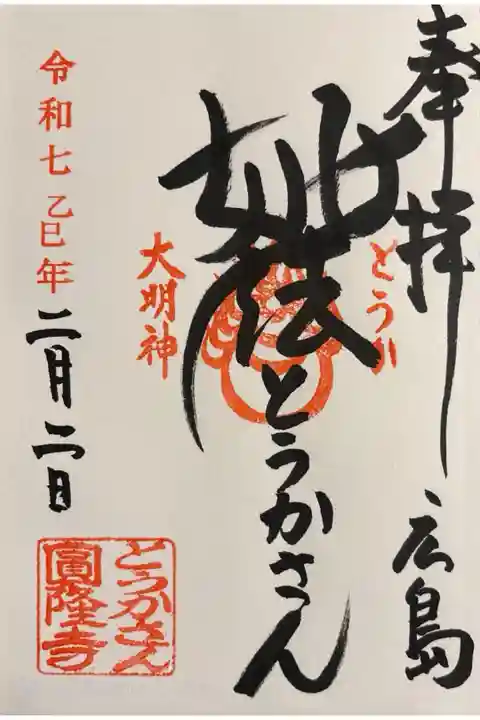 奉拝 広島
妙法
とうかさん
とうか
大明神
令和七乙巳年二月二日
とうかさん
圓隆寺